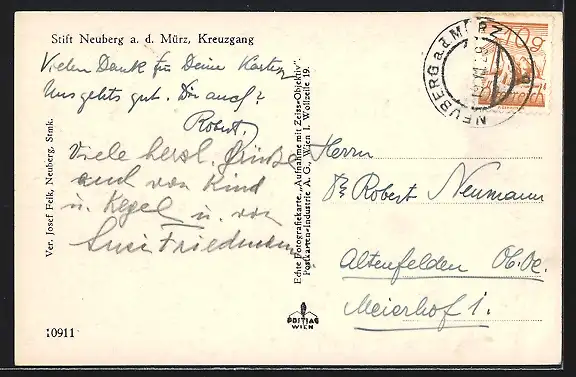 Stift Neuberg a. d. Mürz, Kreuzgang
Vielen Dank für Deine Karten.
Uns gehts gut. Dir auch?
Robert.
Viele herzl. Grüße
auch von Kind
u. Kegel u. von
Susi Friedmann
Ver. Josef Feik, Neuberg, Stmk.
10911
Echte Fotografiekarte „Aufnahme mit Zeiss-Objektiv".
Postkarten-Industrie A. G., Wien I. Wollzeile 19.
POSTIAG
WIEN
NEUBERG a.d. MÜRZ
10g
Österreich
Herrn
Dr Robert Neumann
Altenfelden Ob. Oe.
Meierhof 1.